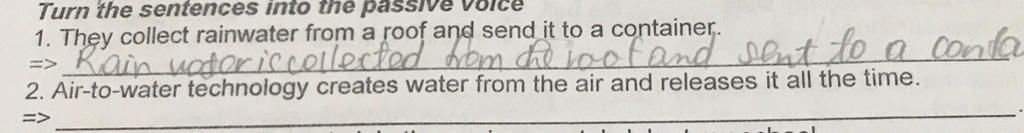 Turn the sentences into the passive voice
1. They collect rainwater from a roof and send it to a container.
=> Rain water is collected from the roof and sent to a conta
2. Air-to-water technology creates water from the air and releases it all the time.
=>